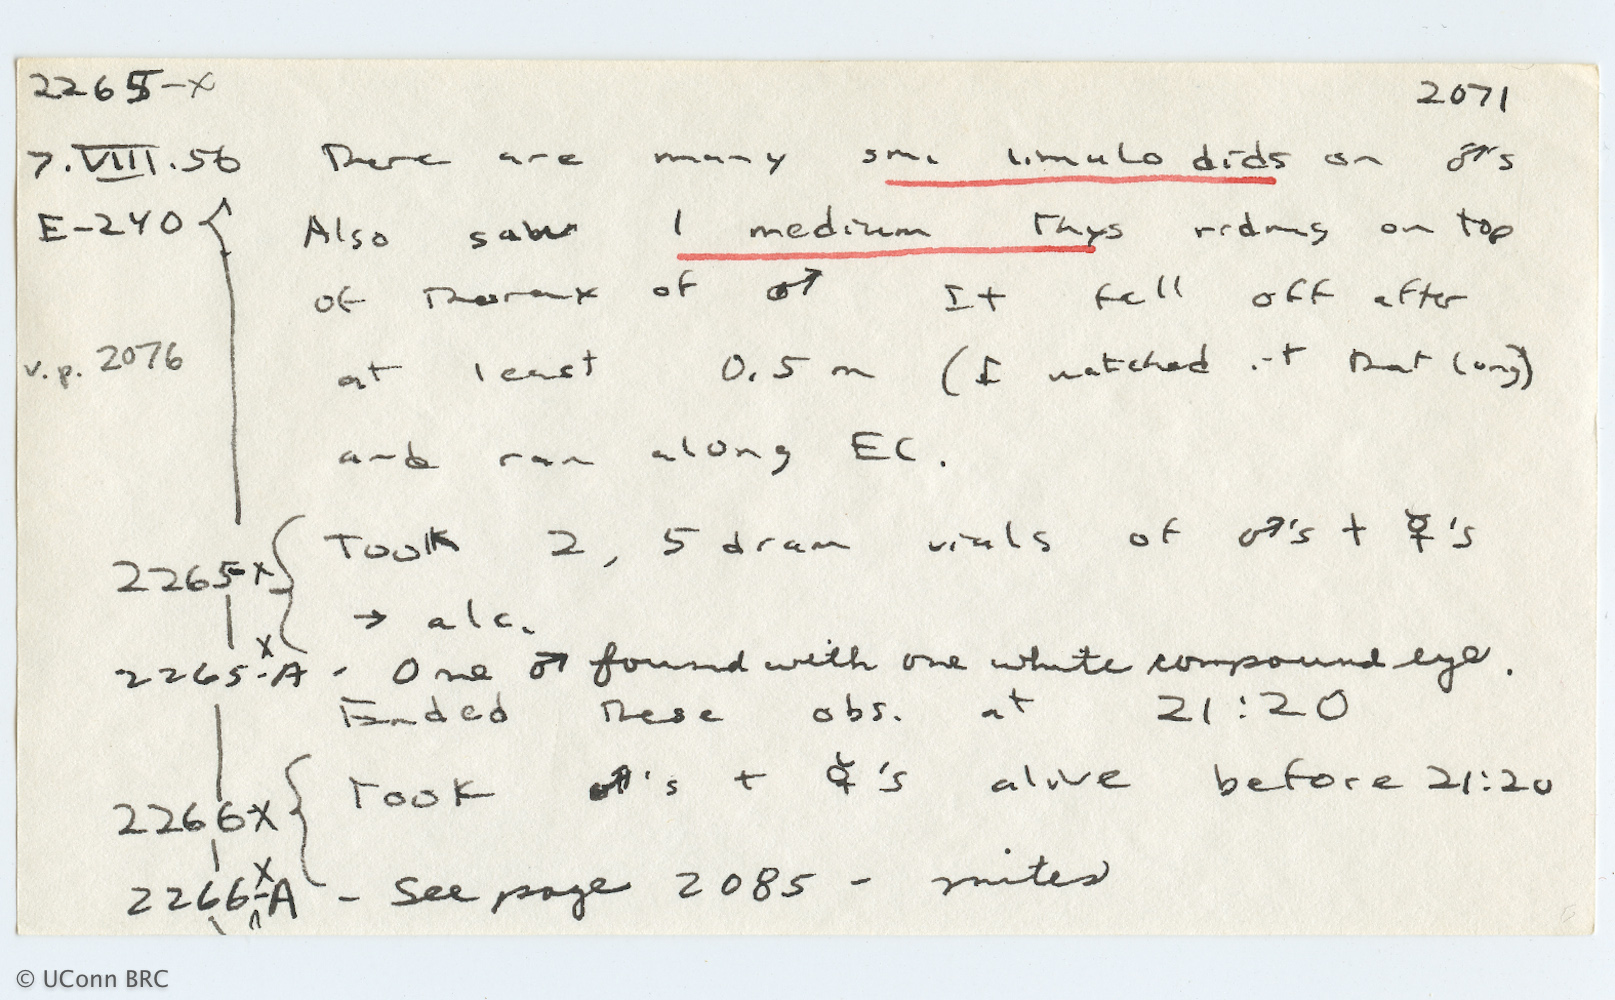 2265-x 2071
7.VIII.56 There are many sm. limulodids on ♂'s
E-240 { Also saw 1 medium Thys riding on top
of thorax of ♂ It fell off after
v.p. 2076
at least 0.5 m (I watched it that long)
and ran along EC.
2265-x { Took 2, 5 dram vials of ♂'s + ☿'s
→ alc.
2265-x-A - One ♂ found with one white compound eye.
Ended these obs. at 21:20
2266x { Took ♂'s + ☿'s alive before 21:20
2266-x-A - See page 2085 - mites
© UConn BRC